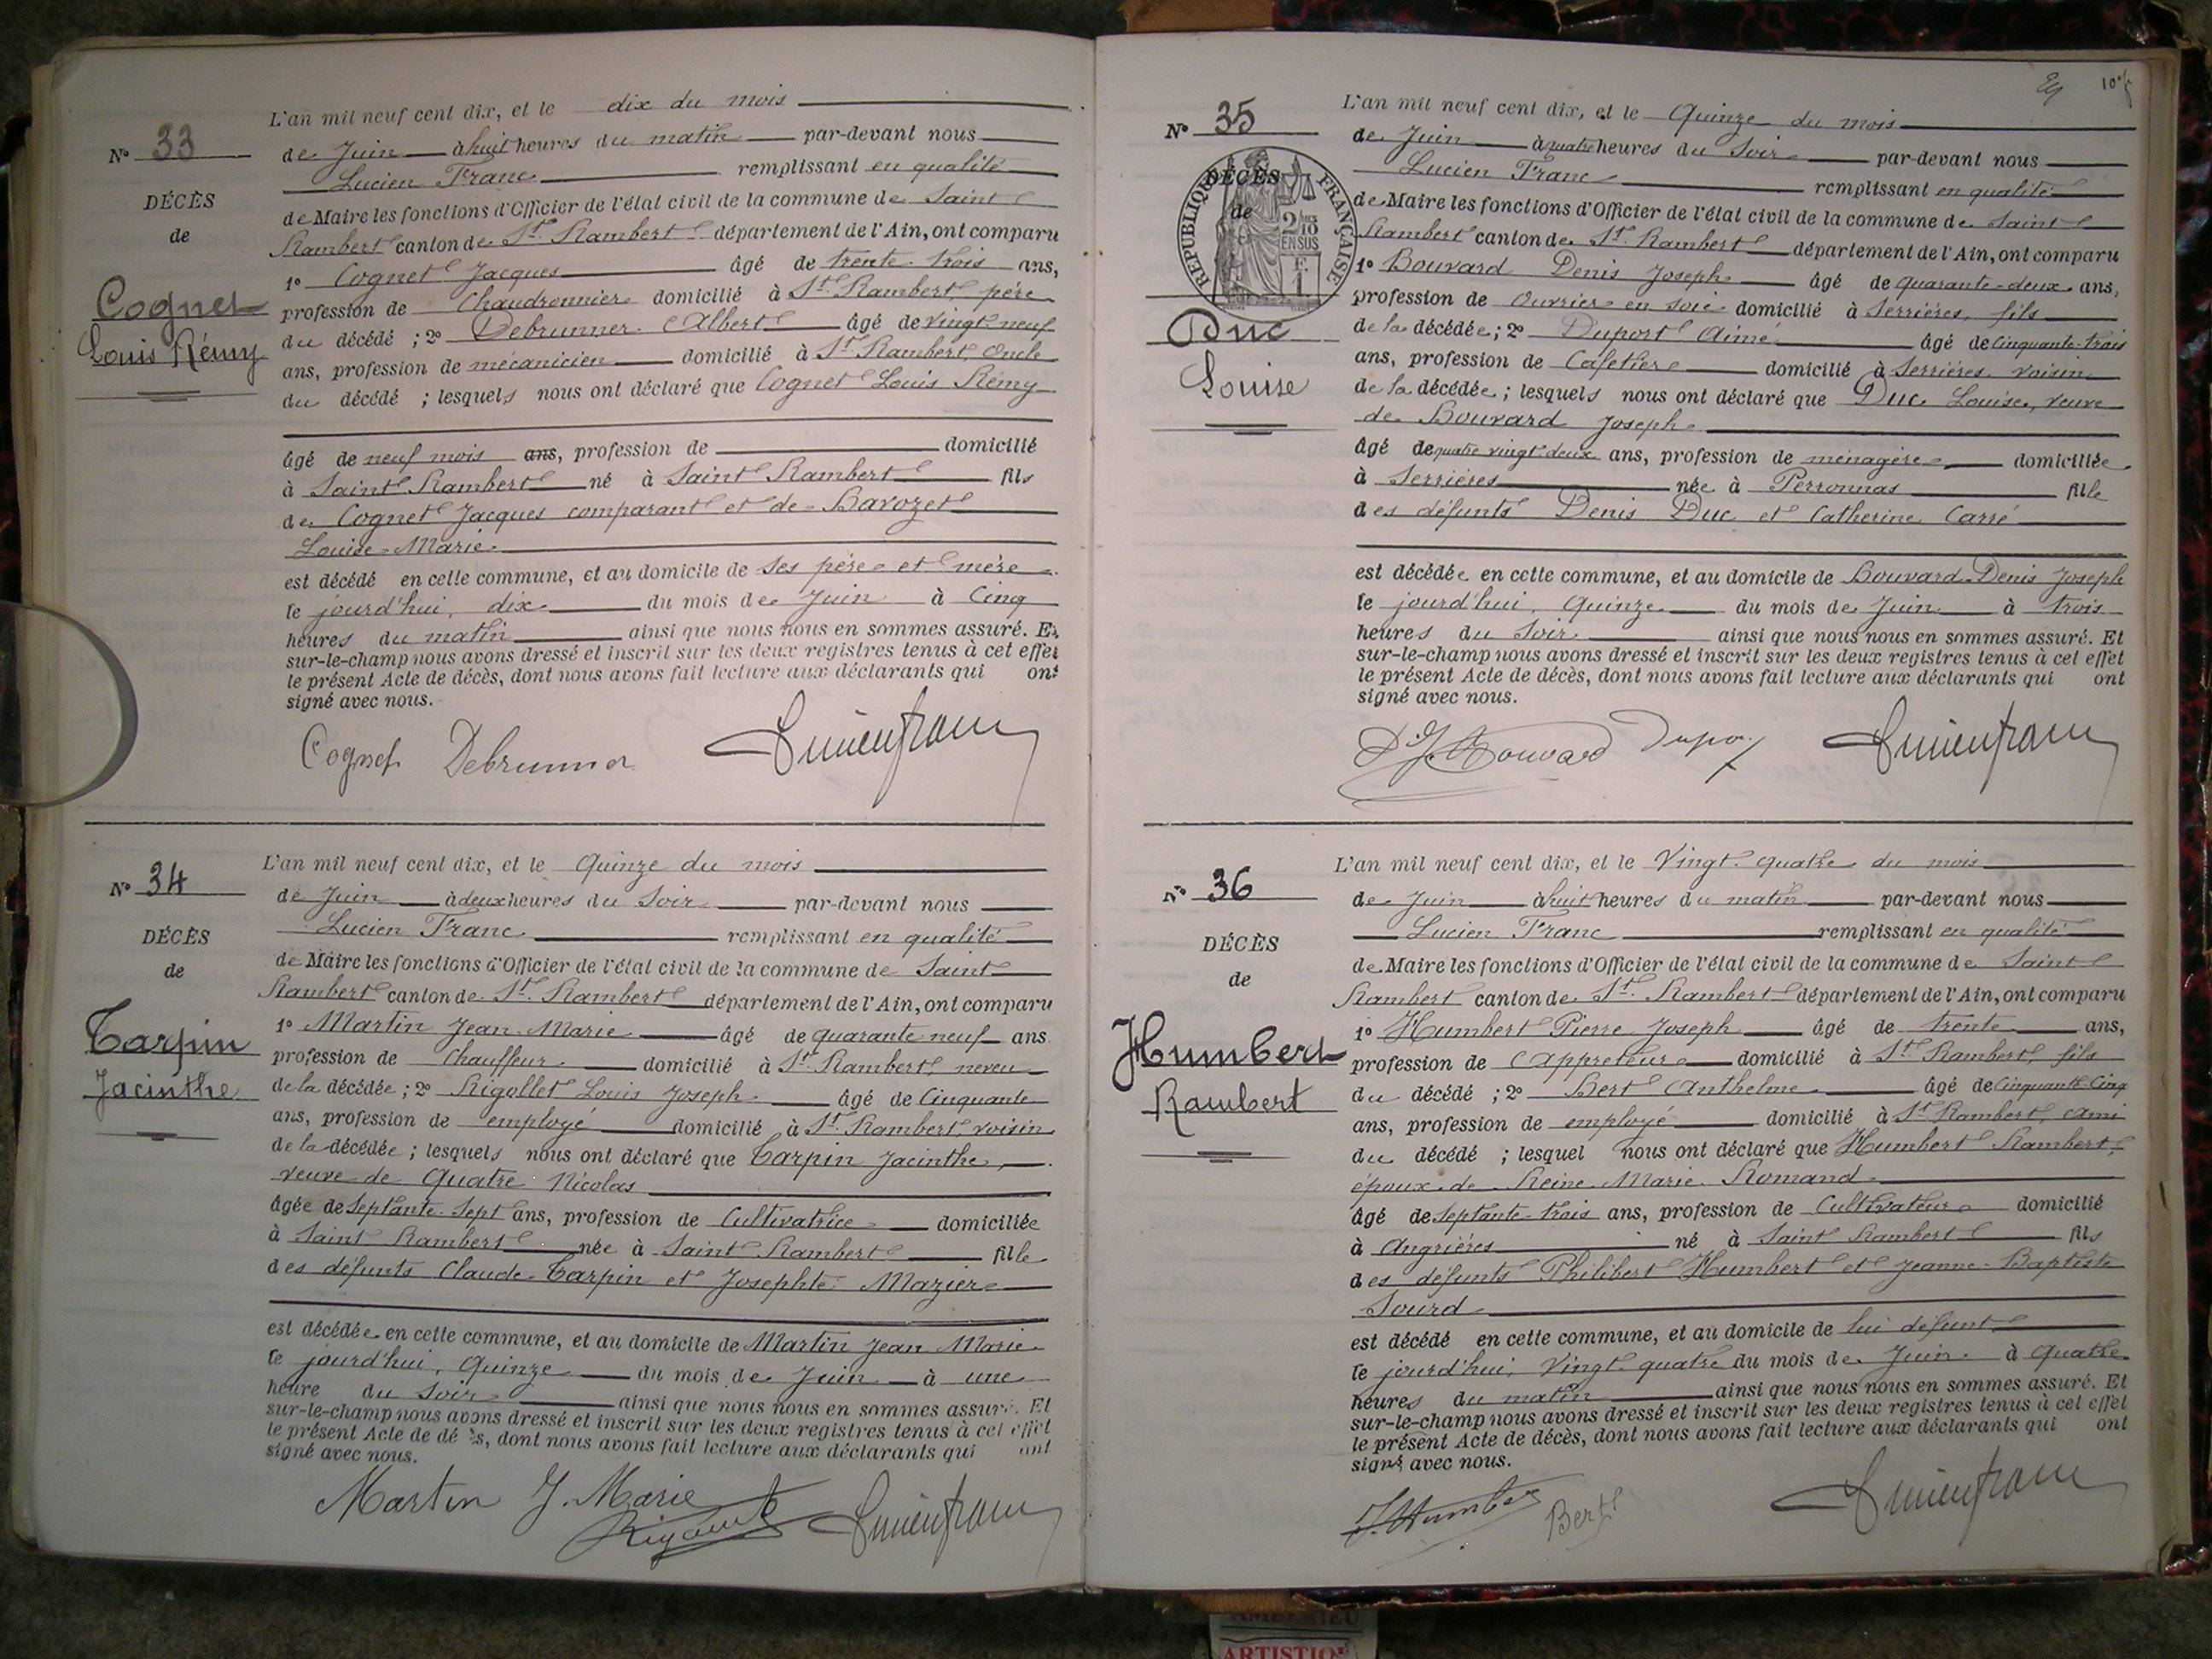 L'an mil neuf cent dix, et le dix du mois
N° 33
de Juin à huit heures du matin par-devant nous
Lucien Franc remplissant en qualité
DÉCÈS
de Maire les fonctions d'Officier de l'état civil de la commune de Saint
de
Rambert canton de St. Rambert département de l'Ain, ont comparu
1° Cognet Jacques âgé de trente-trois ans,
Cognet
profession de Chaudronnier domicilié à St. Rambert, père
du décédé ; 2° Debrunner Albert âgé de vingt-neuf
Louis Rémy
ans, profession de mécanicien domicilié à St. Rambert, oncle
du décédé ; lesquels nous ont déclaré que Cognet Louis Rémy
âgé de neuf mois ans, profession de domicilié
à Saint Rambert né à Saint Rambert fils
de Cognet Jacques comparant et de Bavozet
Louise Marie
est décédé en cette commune, et au domicile de ses père et mère
le jourd'hui, dix du mois de Juin à Cinq
heures du matin ainsi que nous nous en sommes assuré. Et
sur-le-champ nous avons dressé et inscrit sur les deux registres tenus à cet effet
le présent Acte de décès, dont nous avons fait lecture aux déclarants qui ont
signé avec nous.
Cognet Debrunner
L'an mil neuf cent dix, et le Quinze du mois
N° 34
de Juin à deux heures du Soir par-devant nous
Lucien Franc remplissant en qualité
DÉCÈS
de Maire les fonctions d'Officier de l'état civil de la commune de Saint
de
Rambert canton de St. Rambert département de l'Ain, ont comparu
1° Martin Jean-Marie âgé de quarante neuf ans
Tarpin
profession de Chauffeur domicilié à St. Rambert neveu
Jacinthe
de la décédée ; 2° Rigollet Louis Joseph âgé de Cinquante
ans, profession de employé domicilié à St. Rambert, voisin
de la décédée ; lesquels nous ont déclaré que Tarpin Jacinthe,
veuve de Quatre Nicolas
âgée de Septante-Sept ans, profession de Cultivatrice domiciliée
à Saint Rambert née à Saint Rambert fille
des défunts Claude Tarpin et Josephte Mazier
est décédée en cette commune, et au domicile de Martin Jean Marie
le jourd'hui, Quinze du mois de Juin à une
heure du Soir ainsi que nous nous en sommes assuré. Et
sur-le-champ nous avons dressé et inscrit sur les deux registres tenus à cet effet
le présent Acte de décès, dont nous avons fait lecture aux déclarants qui ont
signé avec nous.
Martin J. Marie
L'an mil neuf cent dix, et le Quinze du mois
N° 35
de Juin à quatre heures du Soir par-devant nous
Lucien Franc remplissant en qualité
DÉCÈS
RÉPUBLIQUE FRANÇAISE
2/10 EN SUS
F. 1
de Maire les fonctions d'Officier de l'état civil de la commune de Saint
de
Rambert canton de St. Rambert département de l'Ain, ont comparu
1° Bouvard Denis Joseph âgé de quarante-deux ans,
profession de ouvrier en soie domicilié à Serrières, fils
Duc
de la décédée ; 2° Duport Aimé âgé de Cinquante-trois
ans, profession de Cafetier domicilié à Serrières voisin
Louise
de la décédée ; lesquels nous ont déclaré que Duc Louise, veuve
de Bouvard Joseph
âgé de quatre vingt-deux ans, profession de ménagère domiciliée
à Serrières née à Perronnas fille
des défunts Denis Duc et Catherine Carré
est décédée en cette commune, et au domicile de Bouvard Denis Joseph
le jourd'hui, Quinze du mois de Juin à trois
heures du Soir ainsi que nous nous en sommes assuré. Et
sur-le-champ nous avons dressé et inscrit sur les deux registres tenus à cet effet
le présent Acte de décès, dont nous avons fait lecture aux déclarants qui ont
signé avec nous.
D. J. Bouvard
L'an mil neuf cent dix, et le Vingt-quatre du mois
N° 36
de Juin à huit heures du matin par-devant nous
Lucien Franc remplissant en qualité
DÉCÈS
de Maire les fonctions d'Officier de l'état civil de la commune de Saint
de
Rambert canton de St. Rambert département de l'Ain, ont comparu
1° Humbert Pierre Joseph âgé de trente ans,
Humbert
profession de Appreteur domicilié à St. Rambert fils
Rambert
du décédé ; 2° Bert Anthelme âgé de Cinquante Cinq
ans, profession de employé domicilié à St. Rambert, ami
du décédé ; lesquel nous ont déclaré que Humbert Rambert,
époux de Reine Marie Romand
âgé de Septante-trois ans, profession de Cultivateur domicilié
à Angrières né à Saint Rambert fils
des défunts Philibert Humbert et Jeanne-Baptiste
Sourd
est décédé en cette commune, et au domicile de lui défunt
le jourd'hui, Vingt-quatre du mois de Juin à Quatre
heures du matin ainsi que nous nous en sommes assuré. Et
sur-le-champ nous avons dressé et inscrit sur les deux registres tenus à cet effet
le présent Acte de décès, dont nous avons fait lecture aux déclarants qui ont
signé avec nous.
J. Humbert Bert
AMBERIEU